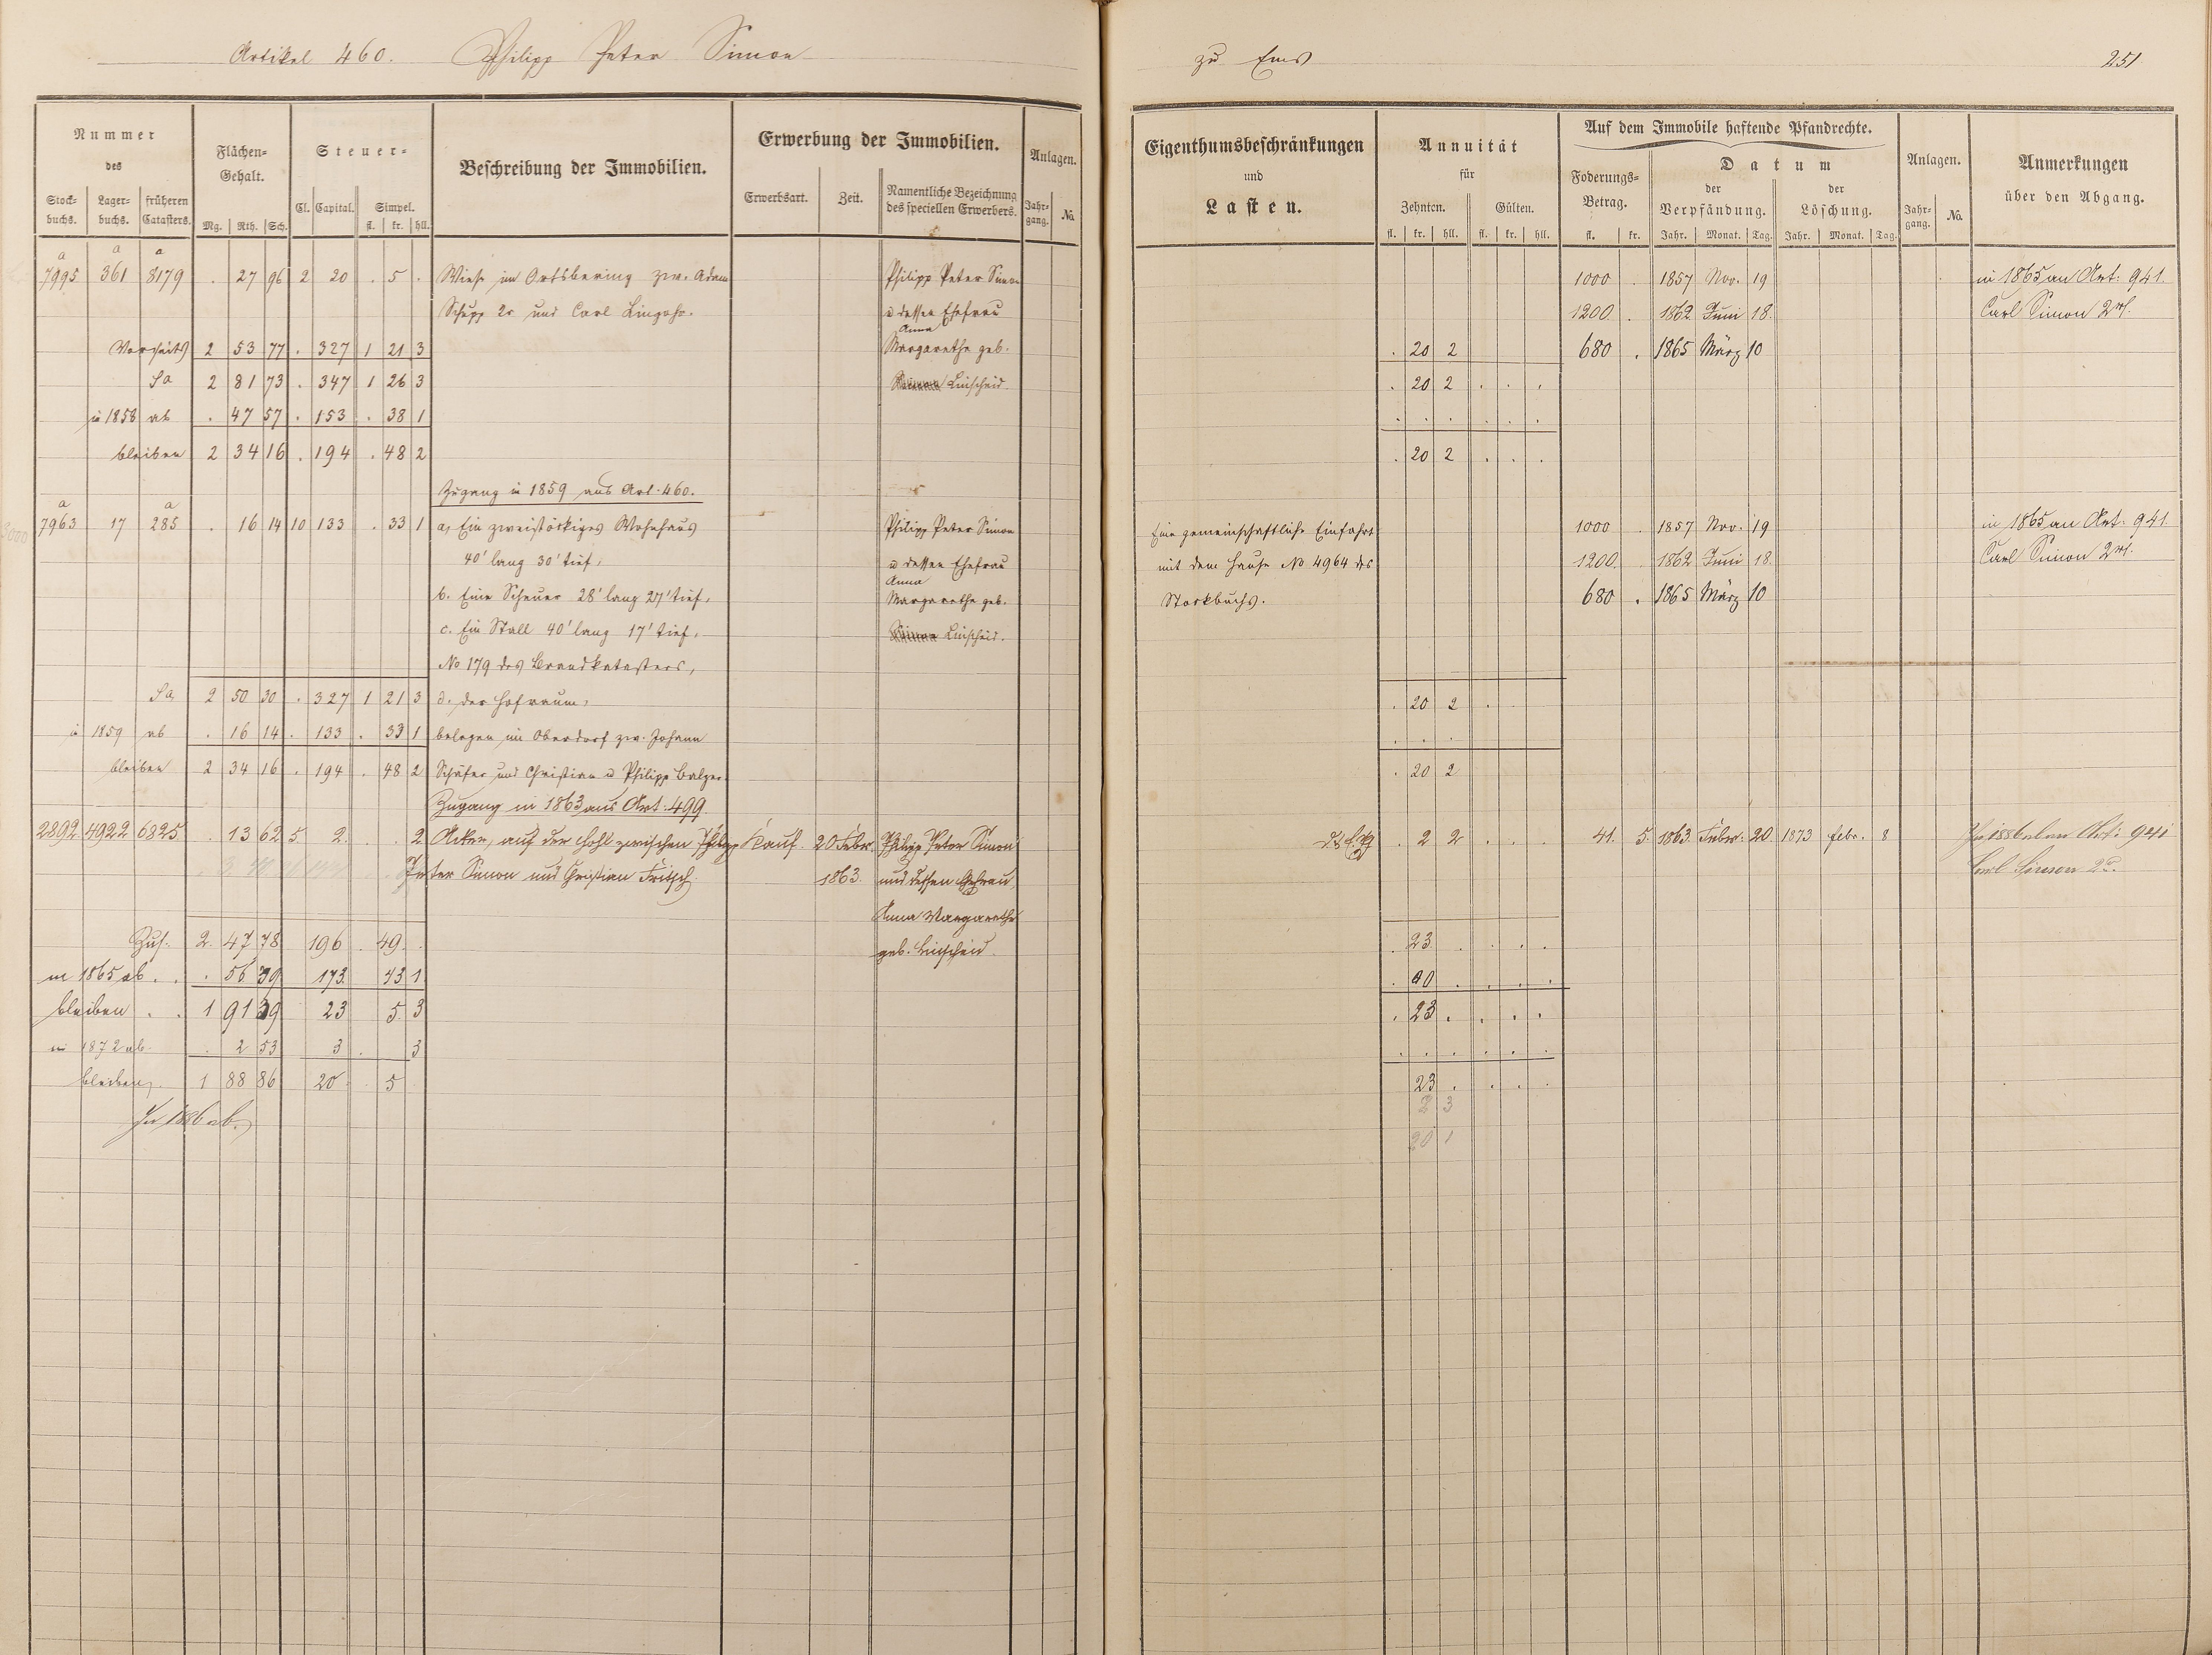 Artikel 460. Philipp Peter Simon
Nummer
des
Stock-
buchs.
Lager-
buchs.
früheren
Catasters.
Flächen-
Gehalt.
Mg. Rth. Sch.
Steuer-
Cl. Capital. Simpel.
fl. kr. hll.
Beschreibung der Immobilien.
Erwerbung der Immobilien.
Erwerbsart. Zeit. Namentliche Bezeichnung
des speciellen Erwerbers.
Anlagen.
Jahr-
gang. No.
a a a
7995 361 8179 . 27 96 2 20 . 5 . Wiese im Ortsbering zw. Adam Philipp Peter Simon
Schupp 2r und Carl Linzohr. u dessen Ehefrau
Anna
Vorseits 2 53 77 . 327 1 21 3 Margarethe geb.
Sa 2 81 73 . 347 1 26 3 Simon Linscheid.
in 1858 ab . 47 57 . 153 . 38 1
bleiben 2 34 16 . 194 . 48 2
Zugang in 1859 aus Art. 460.
a a
7963 17 285 . 16 14 10 133 . 33 1 a, Ein zweistöckiges Wohnhaus Philipp Peter Simon
40' lang 30' tief, u dessen Ehefrau
Anna
b. Eine Scheuer 28' lang 27' tief, Margarethe geb.
c. Ein Stall 40' lang 17' tief, Simon Linscheid.
No 179 des Brandkatasters,
Sa 2 50 30 . 327 1 21 3 d. der Hofraum,
in 1859 ab . 16 14 . 133 . 33 1 belegen im Oberdorf zw. Johann
bleiben 2 34 16 . 194 . 48 2 Schäfer und Christian u Philipp Balzer.
Zugang in 1863 aus Art: 499.
2892 4922 6825 . 13 62 5 2 . . 2 Acker, auf der Hohl zwischen Philipp Kauf. 20. Febr. Philipp Peter Simon
Peter Simon und Christian Fritsch. 1863. und dessen Ehefrau,
Anna Margarethe
Zus. 2 47 78 196 . 49 . geb. Linscheid.
in 1865 ab . . . 56 39 173 . 43 1
bleiben . . 1 91 39 23 5 3
in 1872 ab . 2 53 3 . 3
bleiben 1 88 86 20 . 5
In 1886 ab.
zu Ems
251
Eigenthumsbeschränkungen
und
Lasten.
Annuität
für
Zehnten. Gülten.
fl. kr. hll. fl. kr. hll.
Auf dem Immobile haftende Pfandrechte.
Foderungs-
Betrag.
fl. kr.
Datum
der
Verpfändung.
Jahr. Monat. Tag.
der
Löschung.
Jahr. Monat. Tag.
Anlagen.
Jahr-
gang. No.
Anmerkungen
über den Abgang.
1000 . 1857 Nov. 19 in 1865 an Art: 941.
1200 . 1862 Juni 18. Carl Simon 2r.
. 20 2 680 . 1865 März 10
. 20 2 . . .
. . . . . .
. 20 2 . . .
Eine gemeinschaftliche Einfahrt 1000 . 1857 Nov. 19 in 1865 an Art: 941.
mit dem Hause No 4964 des 1200 . 1862 Juni 18. Carl Simon 2r.
Stockbuchs. 680 . 1865 März 10
. 20 2 .
. . .
. 20 2
. 2 2 . . . 41. 5. 1863. Febr: 20. 1873 Febr. 8 In 1886 an Art: 941
Carl Simon 2r.
. 23 . . . .
. 00 . . . .
. 23 . . . .
. . . . . .
23 . . . .
2 3
20 1